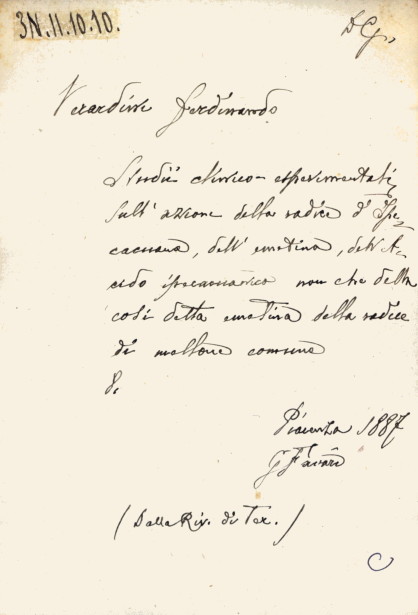 3N.11.10.10.
Verardini Ferdinando
Studii clinico-esperimentali,
sull' azione della radice d' Ipe-
cacuana, dell' emetina, dell' A-
cido ipecacuanico non che della
così detta emetina della radice
di mellone comune
8.
Piacenza 1887
G Favari
(Dalla Riv. di Ter.)
C